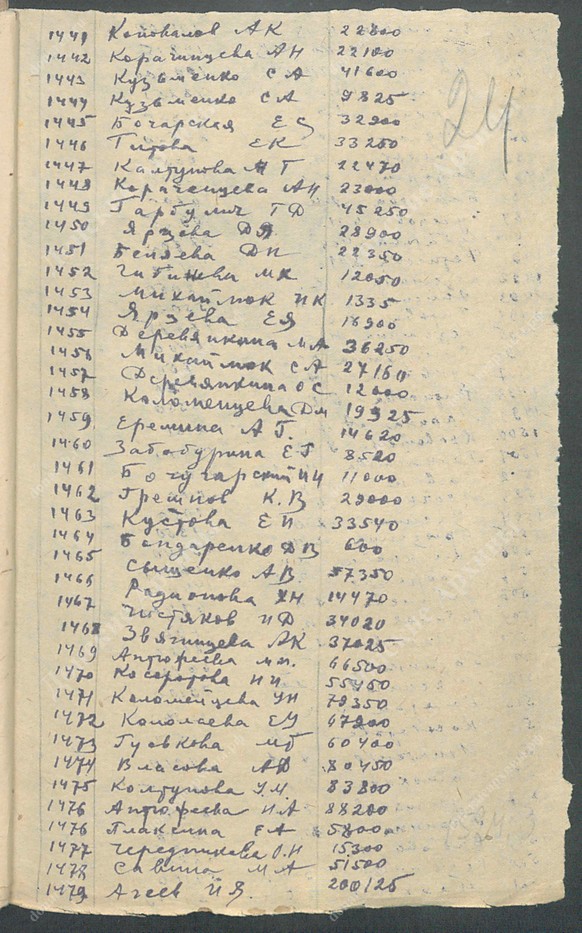 24
1441 Коновалов АК 22800
1442 Корачинцева АН 22100
1443 Кузьменко СА 41600
1444 Кузьменко СА 9825
1445 Бочарская ЕС 32900
1446 Титова ЕК 33250
1447 Калтунова МГ 22470
1448 Кораченцева АН 23000
1449 Гарбулич ГФ 45250
1450 Ярцева 28900
1451 Беляева ДН 22350
1452 Чибижва МК 12050
1453 Михайлюк НК 1335
1454 Ярцева ЕЯ 16900
1455 Деревянкина МА 36250
1456 Михайлюк СА 27160
1457 Деревянкина ОС 12000
1458 Коломенцева ДМ 19925
1459 Еремина АГ. 14620
1460 Забабурина ЕГ 8520
1461 Бочучарский НИ 11000
1462 Грешнов К.В 29000
1463 Кустова ЕИ 33540
1464 Бондаренко ДВ 600
1465 Сыщенко АВ 57350
1466 Радионова УН 14470
1467 Чистяков ИД 34020
1468 Звягинцева АК 37025
1469 Антюфеева М.М. 66500
1470 Косоротова НИ 55450
1471 Коломейцева УН 79350
1472 Кополаева ЕУ 67900
1473 Гуськова МБ 60400
1474 Власова 80450
1475 Колтунова У.М 83800
1476 Антюфеева НА 88200
1476 Плаксина ЕА 58000
1477 Чередникова О.Н 15300
1478 Савина МА 51500
1479 Агеев ИЯ. 200125